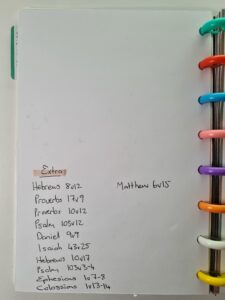 Extra
Hebrews 8v12
Matthew 6v15
Proverbs 17v9
Proverbs 10v12
Psalm 105v12
Daniel 9v9
Isaiah 43v25
Hebrews 10v17
Psalm 103v3-4
Ephesians 1v7-8
Colossians 1v13-14